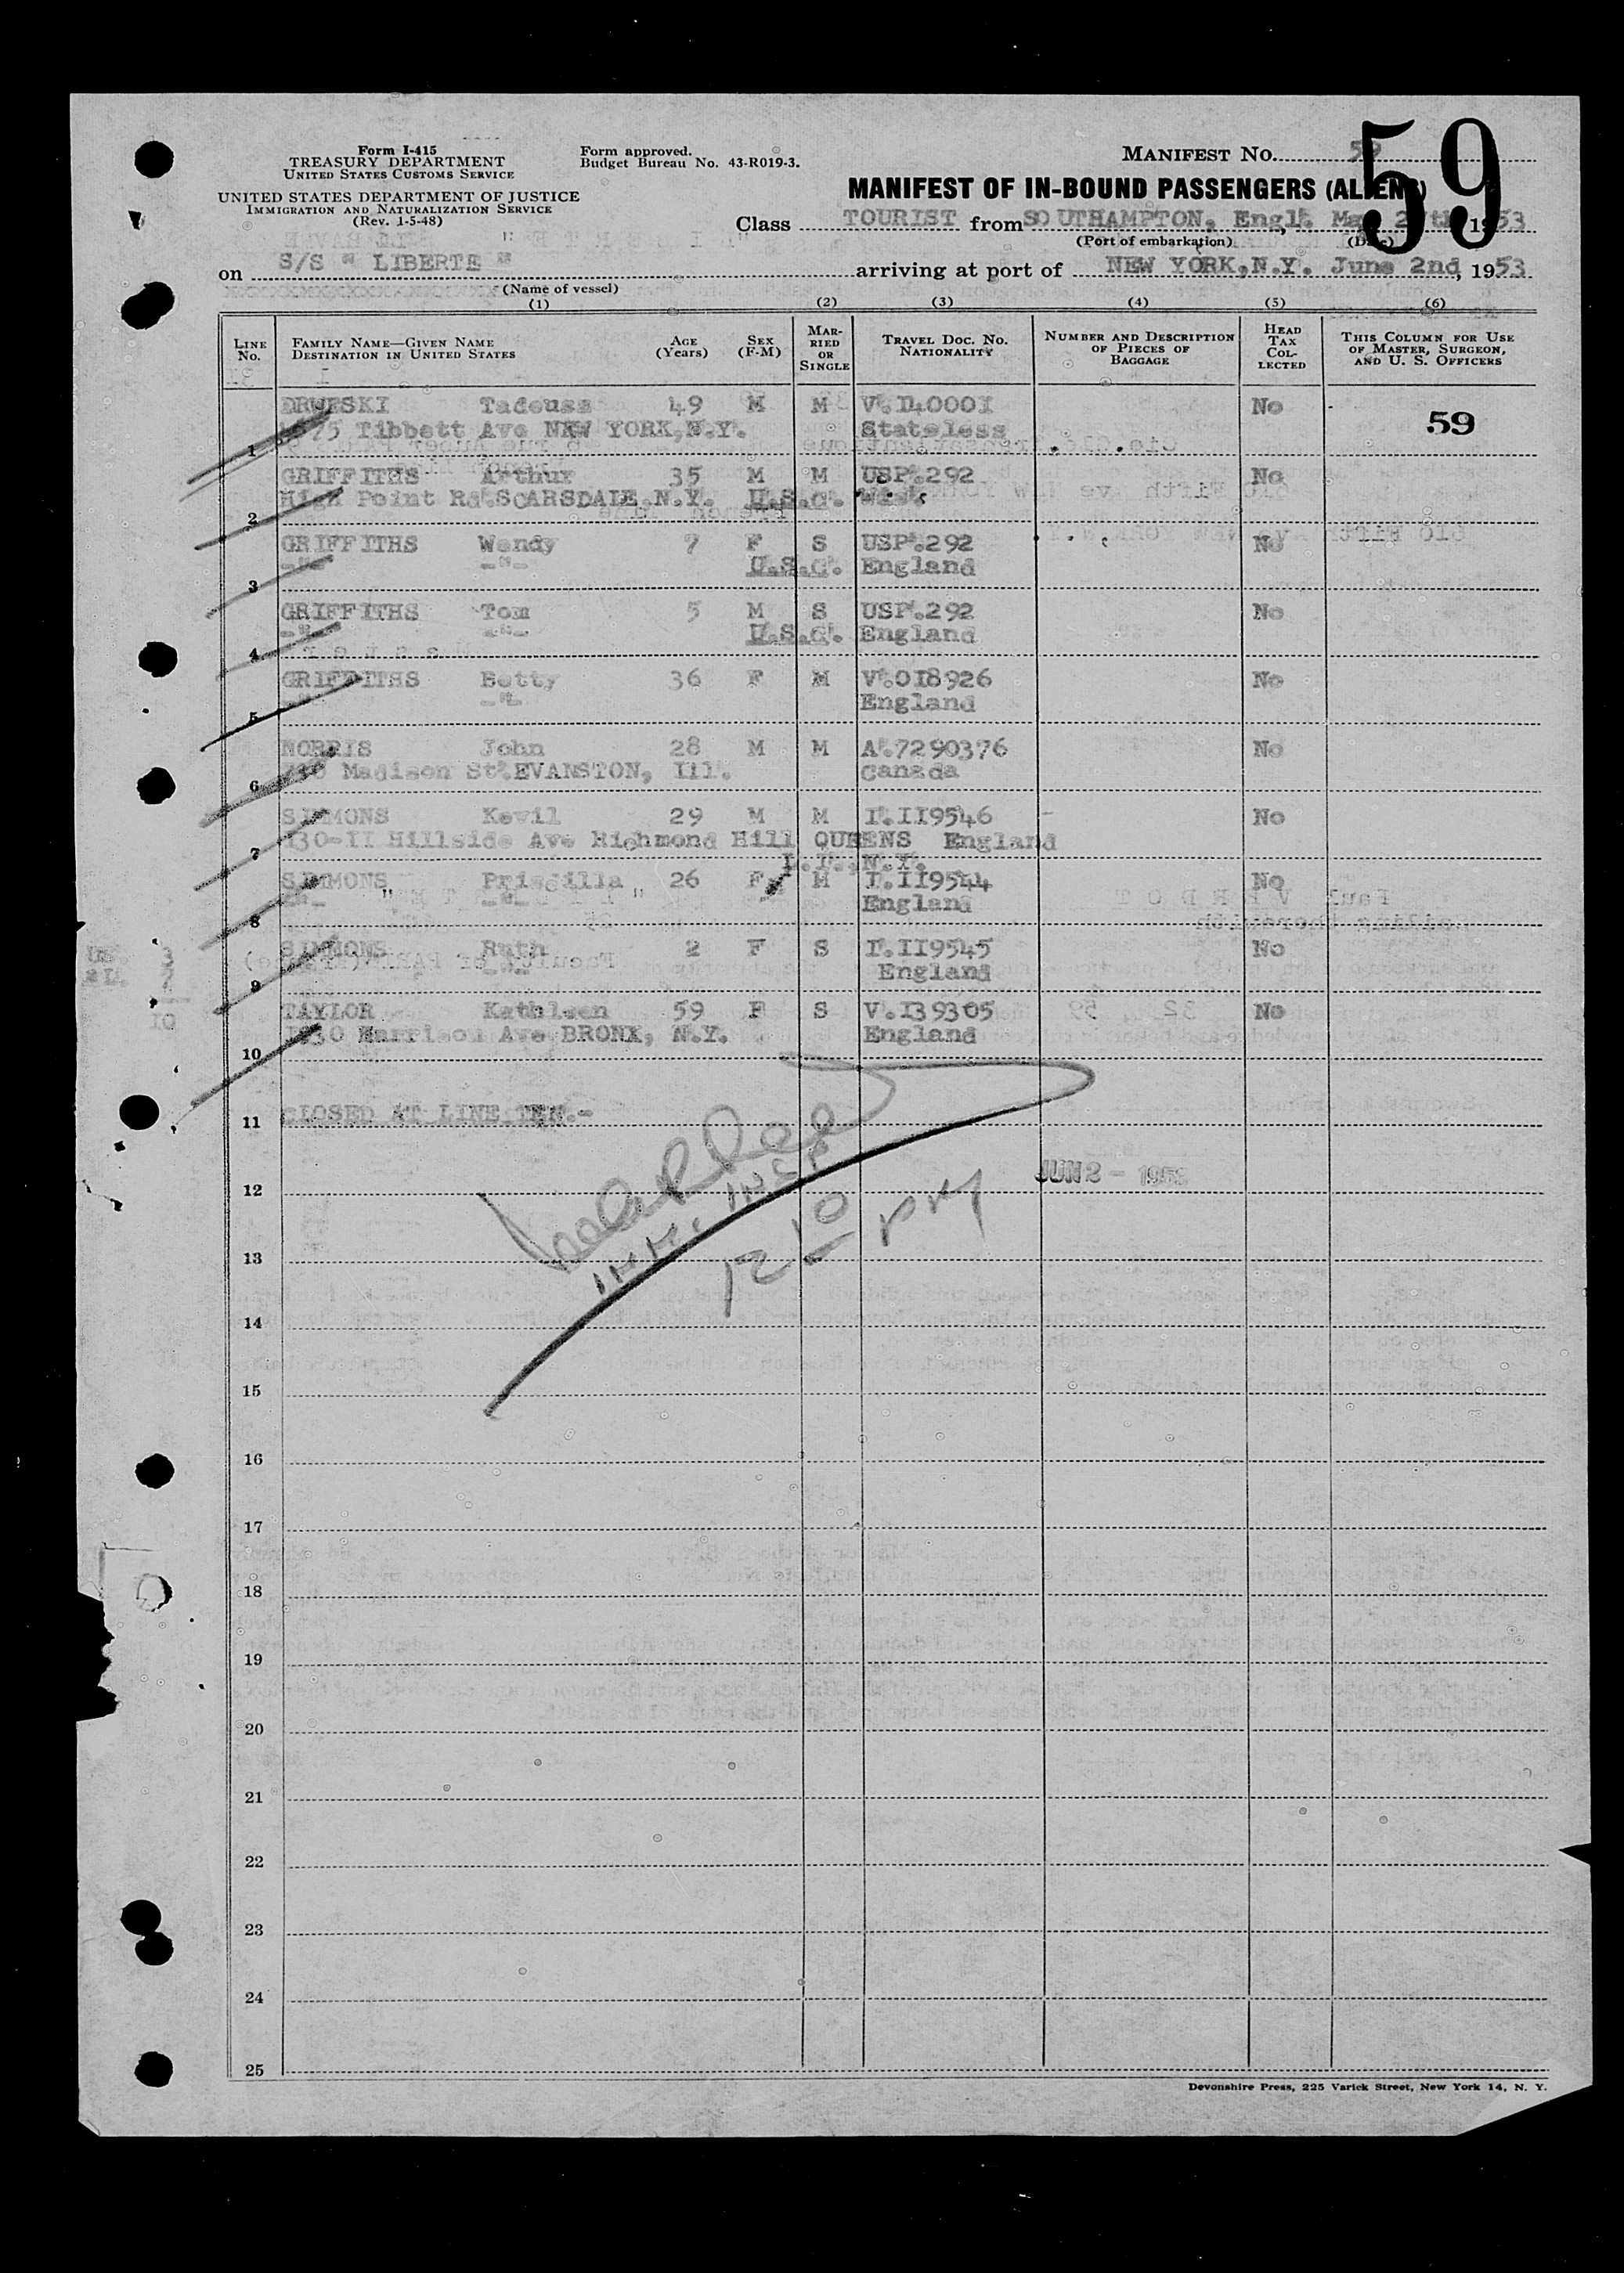 59
Form I-415
TREASURY DEPARTMENT
UNITED STATES CUSTOMS SERVICE
UNITED STATES DEPARTMENT OF JUSTICE
IMMIGRATION AND NATURALIZATION SERVICE
(Rev. 1-5-48)
Form approved.
Budget Bureau No. 43-R019-3.
MANIFEST NO. 59
MANIFEST OF IN-BOUND PASSENGERS (ALIENS)
Class TOURIST from SOUTHAMPTON, Engl. 1953
(Port of embarkation) (Date)
on S/S " LIBERTE " arriving at port of NEW YORK,N.Y. June 2nd, 1953
(Name of vessel)
(1) (2) (3) (4) (5) (6)
LINE NO. FAMILY NAME—GIVEN NAME DESTINATION IN UNITED STATES AGE (Years) SEX (F-M) MARRIED OR SINGLE TRAVEL DOC. NO. NATIONALITY NUMBER AND DESCRIPTION OF PIECES OF BAGGAGE HEAD TAX COLLECTED THIS COLUMN FOR USE OF MASTER, SURGEON, AND U. S. OFFICERS
DRWESKI Tadeusz 49 M M V.I40001 No 59
1 Tibbett Ave NEW YORK,N.Y. Stateless
GRIFFITHS Arthur 35 M M USP.292 No
2 High Point Rd.SCARSDALE N.Y. U.S.C.
GRIFFITHS Wendy 7 F S USP.292 No
3 -"- -"- U.S.C. England
GRIFFITHS Tom 5 M S USP.292 No
4 -"- -"- U.S.C. England
GRIFFITHS Betty 36 F M V.018926 No
5 -"- -"- England
NORRIS John 28 M M A.7290376 No
6 Madison St.EVANSTON, Ill. Canada
SIMMONS Kevil 29 M M I.II9546 No
7 130-II Hillside Ave Richmond Hill QUEENS England
L.I.,N.Y.
SIMMONS Priscilla 26 F M I.II9544 No
8 -"- -"- England
SIMMONS Ruth 2 F S I.II9545 No
9 -"- -"- England
TAYLOR Kathleen 59 F S V.I39305 No
10 Harrison Ave BRONX, N.Y. England
11 CLOSED AT LINE TEN.-
12 JUN 2 - 1953
IMM. INSP
12 10 PM
13
14
15
16
17
18
19
20
21
22
23
24
25
Devonshire Press, 225 Varick Street, New York 14, N. Y.